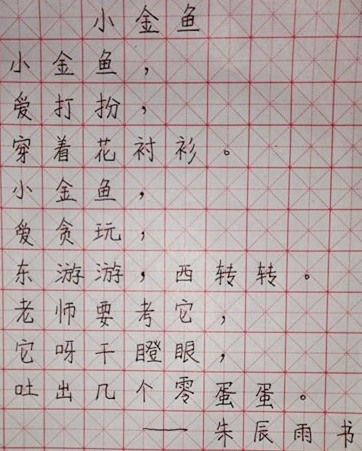 小金鱼
小金鱼，
爱打扮，
穿着花衬衫。
小金鱼，
爱贪玩，
东游游，西转转。
老师要考它，
它呀干瞪眼，
吐出几个零蛋蛋。
——朱辰雨书